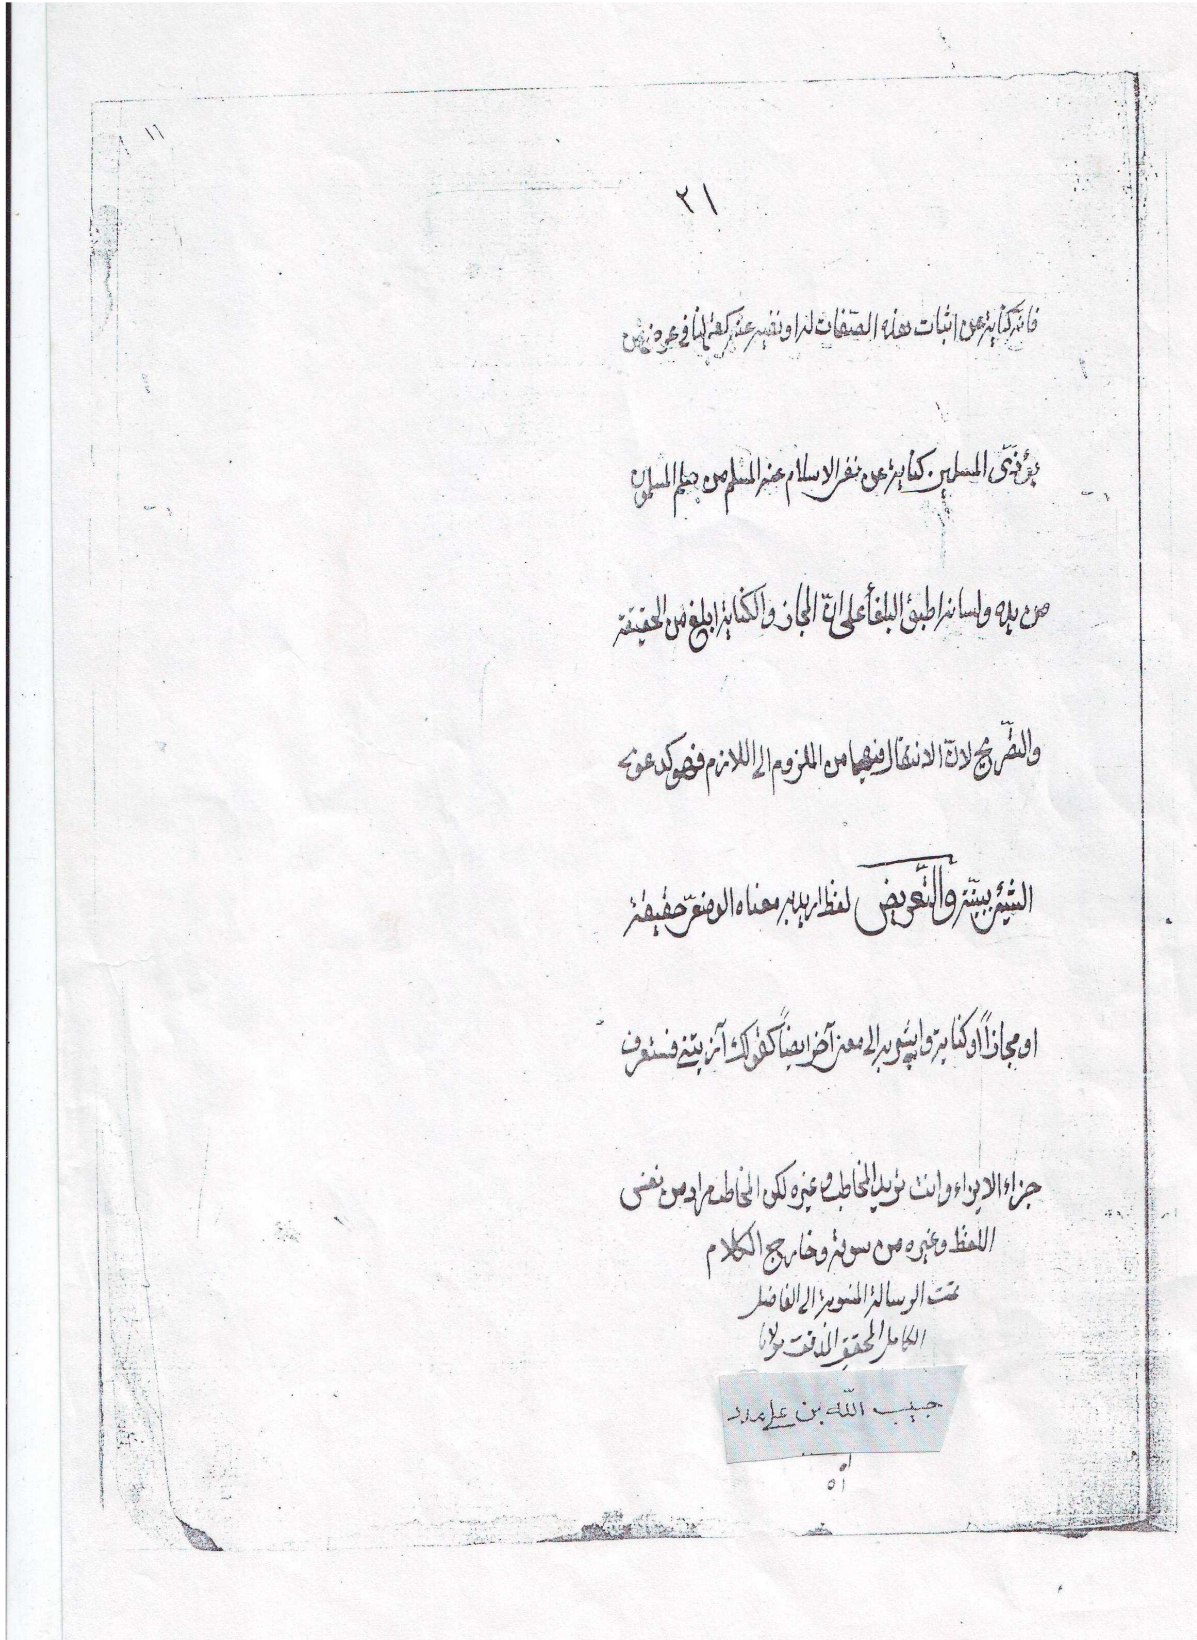 ١١
٢١
فانه كناية عن اثبات هذه الصّفات له او نفيه عنه كقولنا في عرض من
يؤذى المسلمين كناية عن نفى الاسلام عنه المسلم من سلم المسلمون
من يده ولسانه اطبق البلغأ على انّ المجاز والكناية ابلغ من الحقيقة
والتصّريح لانّ الانتقال فيهما من الملزوم الى اللازم فهو كدعوى
الشيئ ببينّة والتّعريض لفظ اريد به معناه الوضعىّ حقيقة
او مجازاً او كناية واشير به الى معنى آخر ايضاً كقولك آذيتنى فستعرف
جزاء الايذاء وانت تريد المخاطب وغيره لكن المخاطب مراد من نفس
اللفظ وغيره من سوقه وخارج الكلام
تمت الرسالة المنسوبة الى الفاضل
الكامل المحقق المدقق مولانا
حبيب الله بن على مدد
اه